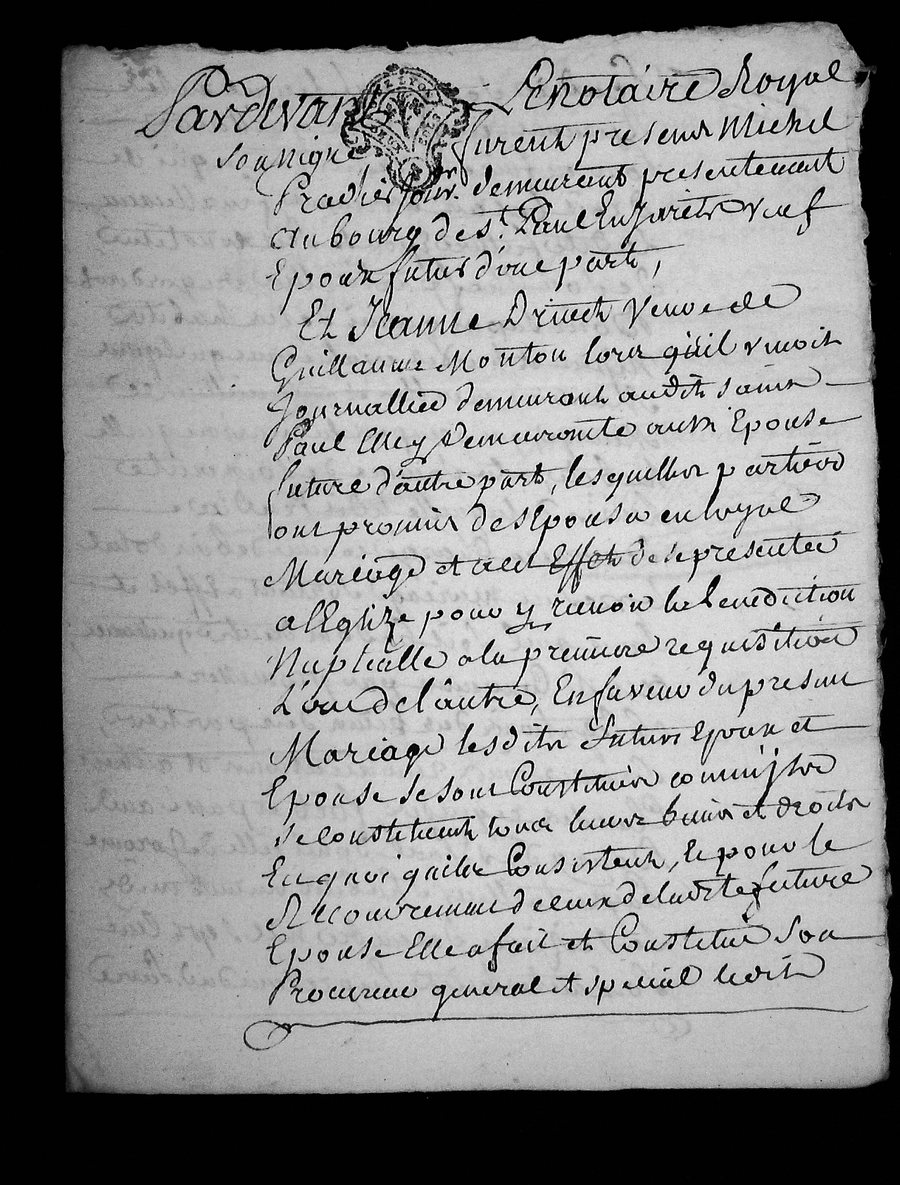 Pardevant Le notaire Royal
soussigné furent presens Michel
Pradier jour.r demeurant presentement
au bourg de St. Paul En Jarets veuf
Epoux futur d'une part,
Et Jeanne Veuve de
Guillaume Monton lors qu'il vivoit
Journallier demeurant audit saint
Paul Elle y Demeurante aussi Epouse
future d'autre part, lesquelles parties
ont promis de s'Epouser en loyal
Mariage et a cet Effet de se presenter
a l'Eglize pour y recevoir la benediction
Nuptialle a la premiere requisition
L'une de l'autre, En faveur du present
Mariage lesdits futurs Epoux et
Epouse se sont Constitués comme ils
se constituent tous leurs biens et droits
En quoi qu'ils Consistent, Et pour le
Recouvrement de ceux de laditte future
Epouse Elle a fait et Constitué son
Procureur general et special ledit